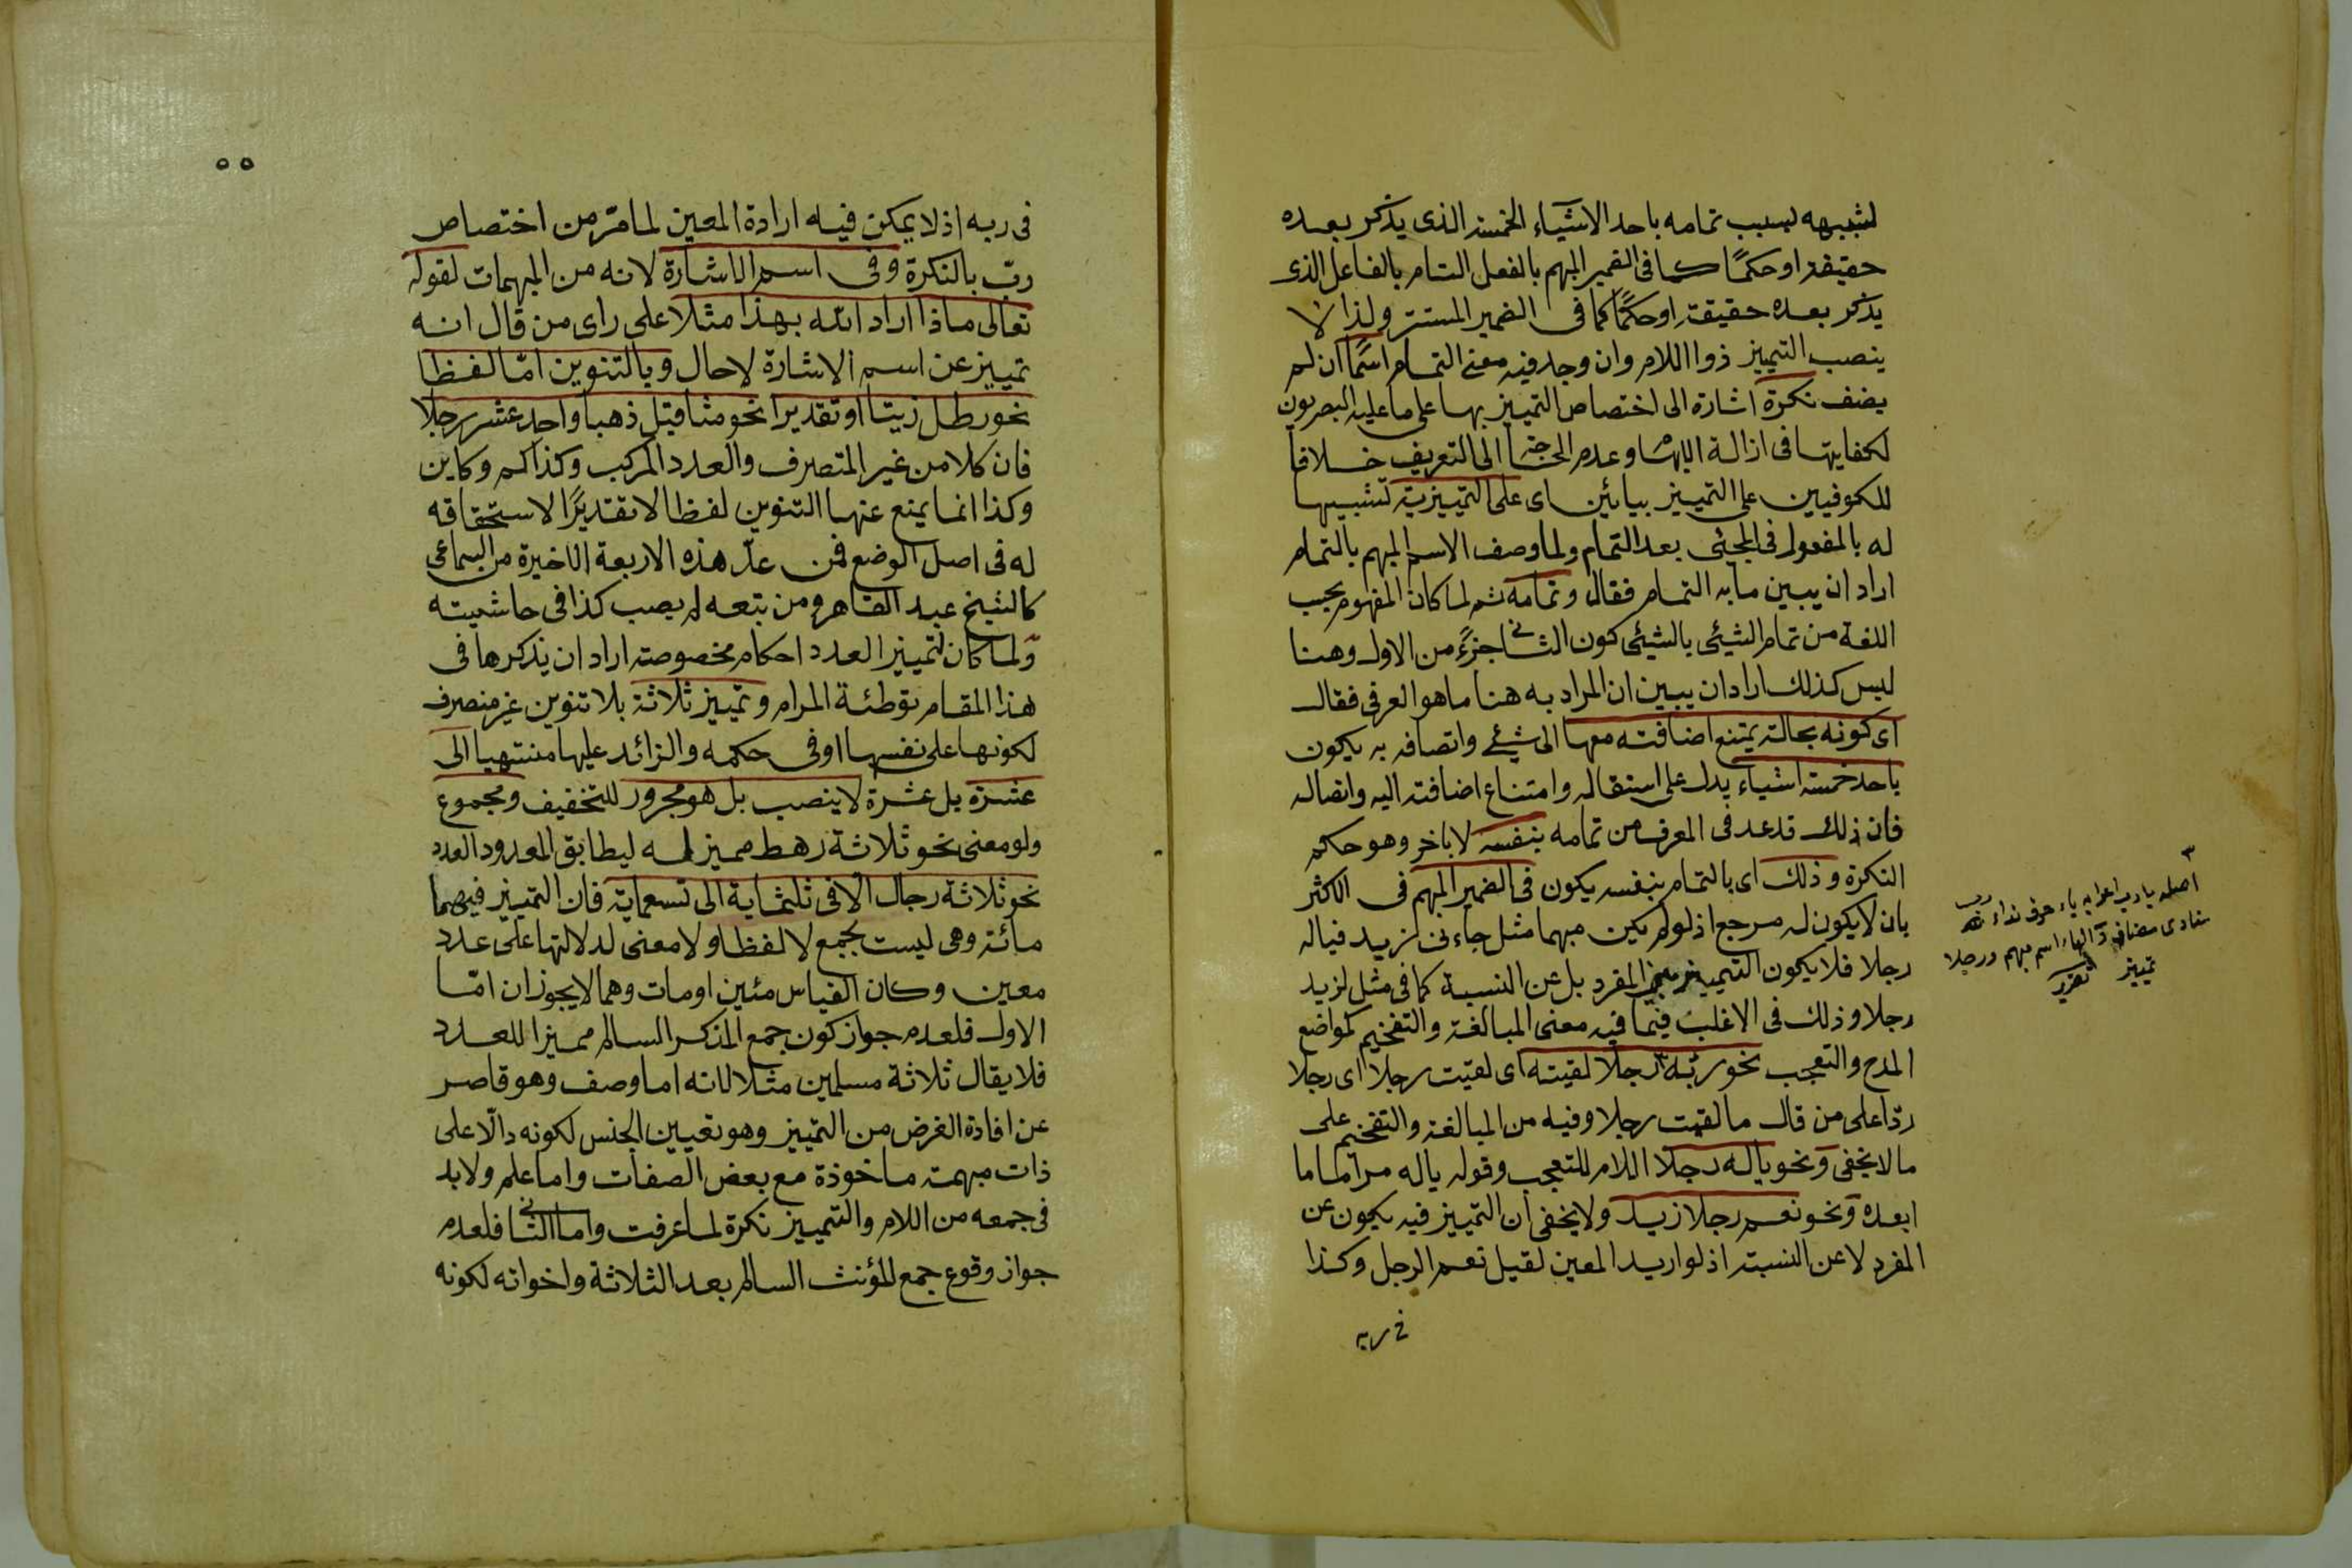 لشبهه بسبب تمامه باحد الاشياء الخمسة الذى يذكر بعده
حقيقة او حكمًا كما فى الضمير المبهم بالفعل التام بالفاعل الذى
يذكر بعده حقيقة او حكمًا كما فى الضمير المستتر ولذا لا
ينصب التمييز ذو اللام وان وجد فيه معنى التمام اسمًا ان لم
يضف نكرة اشارة الى اختصاص التمييز بها على ما عليه البصريون
لكفايتها فى ازالة الابهام وعدم الحاجة الى التعريف خلافا
للكوفيين على التمييز بيائين اى على التمييزية تشبيها
له بالمفعول فى المجئى بعد التمام ولما وصف الاسم المبهم بالتمام
اراد ان يبين ما به التمام فقال وتمامه ثم لما كان المفهوم بحسب
اللغة من تمام الشيئى بالشيئى كون الثانى جزءً من الاول وهنا
ليس كذلك اراد ان يبين ان المراد به هنا ما هو العرفى فقال
اى كونه بحالة يمتنع اضافته معها الى شيئى واتصافه به يكون
باحد خمسة اشياء يدل على استقلاله وامتناع اضافته اليه واتصاله
فان ذلك قد عد فى المعرف من تمامه بنفسه لا باخر وهو حكم
النكرة وذلك اى بالتمام بنفسه يكون فى الضمير المبهم فى الاكثر
بان لا يكون له مرجع اذ لو لم يكن مبهما مثل جاءنى زيد فياله
رجلا فلا يكون التمييز عن المفرد بل عن النسبة كما فى مثل لزيد
رجلا وذلك فى الاغلب فيما فيه معنى المبالغة والتفخيم كمواضع
المدح والتعجب نحو ربّه رجلا لقيته اى لقيت رجلا اى رجلا
ردّا على من قال ما لقيت رجلا وفيه من المبالغة والتفخيم على
ما لا يخفى ونحو ياله رجلا اللام للتعجب وقوله ياله مراتما ما
ابعده ونحو نعم رجلا زيد ولا يخفى ان التمييز فيه يكون عن
المفرد لا عن النسبة اذ لو اريد المعين لقيل نعم الرجل وكذا
فى ربه
٣
اصله يا رب اعرابه ياء حرف نداء رب
منادى مضاف الهاء اسم مبهم ورجلا
تمييز تقرير
٥٥
فى ربه اذ لا يمكن فيه ارادة المعين لما مرّ من اختصاص
ربّ بالنكرة وفى اسم الاشارة لانه من المبهمات لقوله
تعالى ماذا اراد الله بهذا مثلا على راى من قال انه
تمييز عن اسم الاشارة لا حال وبالتنوين امّا لفظا
نحو رطل زيتا او تقديرا نحو مثاقيل ذهبا واحد عشر رجلا
فان كلا من غير المتصرف والعدد المركب وكذا كم وكاين
وكذا انما يمنع عنها التنوين لفظا لا تقديرًا لاستحقاقه
له فى اصل الوضع فمن عدّ هذه الاربعة الاخيرة من السماعى
كالشيخ عبد القاهر ومن تبعه لم يصب كذا فى حاشيته
ولما كان لتمييز العدد احكام مخصوصة اراد ان يذكرها فى
هذا المقام توطئة المرام وتمييز ثلاثة بلا تنوين غير منصرف
لكونها على نفسها او فى حكمه والزائد عليها منتهيا الى
عشرة بل عشرة لا ينصب بل هو مجرور للتخفيف ومجموع
ولو معنى نحو ثلاثة رهط مميز له ليطابق المعدود العدد
نحو ثلاثة رجال الا فى ثلثماية الى تسعماية فان التمييز فيهما
مائة وهى ليست بجمع لا لفظا ولا معنى لدلالتها على عدد
معين وكان القياس مئين او مات وهما لا يجوزان امّا
الاول فلعدم جواز كون جمع المذكر السالم مميزا للعدد
فلا يقال ثلاثة مسلمين مثلا لانه اما وصف وهو قاصر
عن افادة الغرض من التمييز وهو تعيين الجنس لكونه دالّا على
ذات مبهمة ماخوذة مع بعض الصفات واما علم ولا بد
فى جمعه من اللام والتمييز نكرة لما عرفت واما الثانى فلعدم
جواز وقوع جمع المؤنث السالم بعد الثلاثة واخواته لكونه